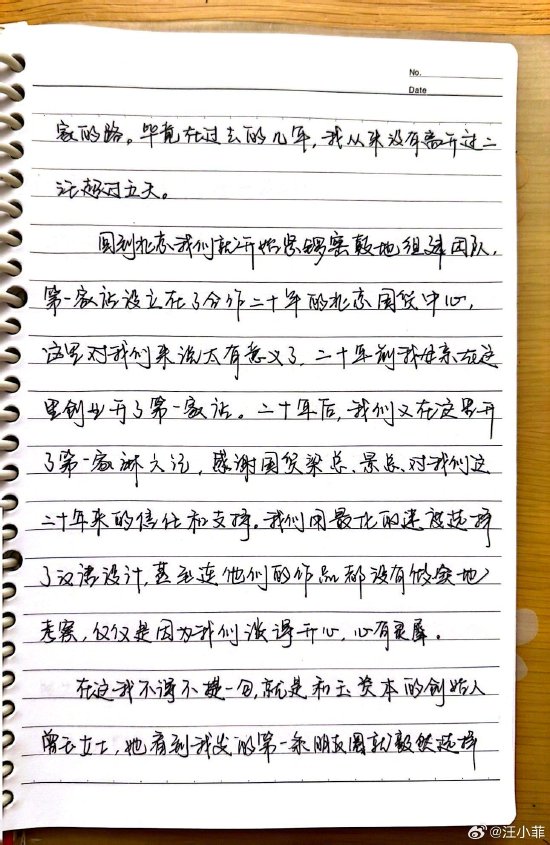 No.
Date
家的路。毕竟在过去的几年,我从来没有离开过二
汪超过五天。
回到北京我们就开始紧锣密鼓地组建团队,
第一家店设立在了合作二十年的北京国贸中心,
这里对我们来说太有意义了,二十年前我母亲在这
里创业开了第一家店。二十年后,我们又在这里开
了第一家麻六记,感谢国贸梁总、景总、对我们这
二十年来的信任和支持。我们用最快的速度选择
了汉诺设计,甚至连他们的作品都没有做实地
考察,仅仅是因为我们谈得开心,心有灵犀。
在这我不得不提一句,就是和玉资本的创始人
曾玉女士,她看到我发的第一条朋友圈就毅然选择
@汪小菲